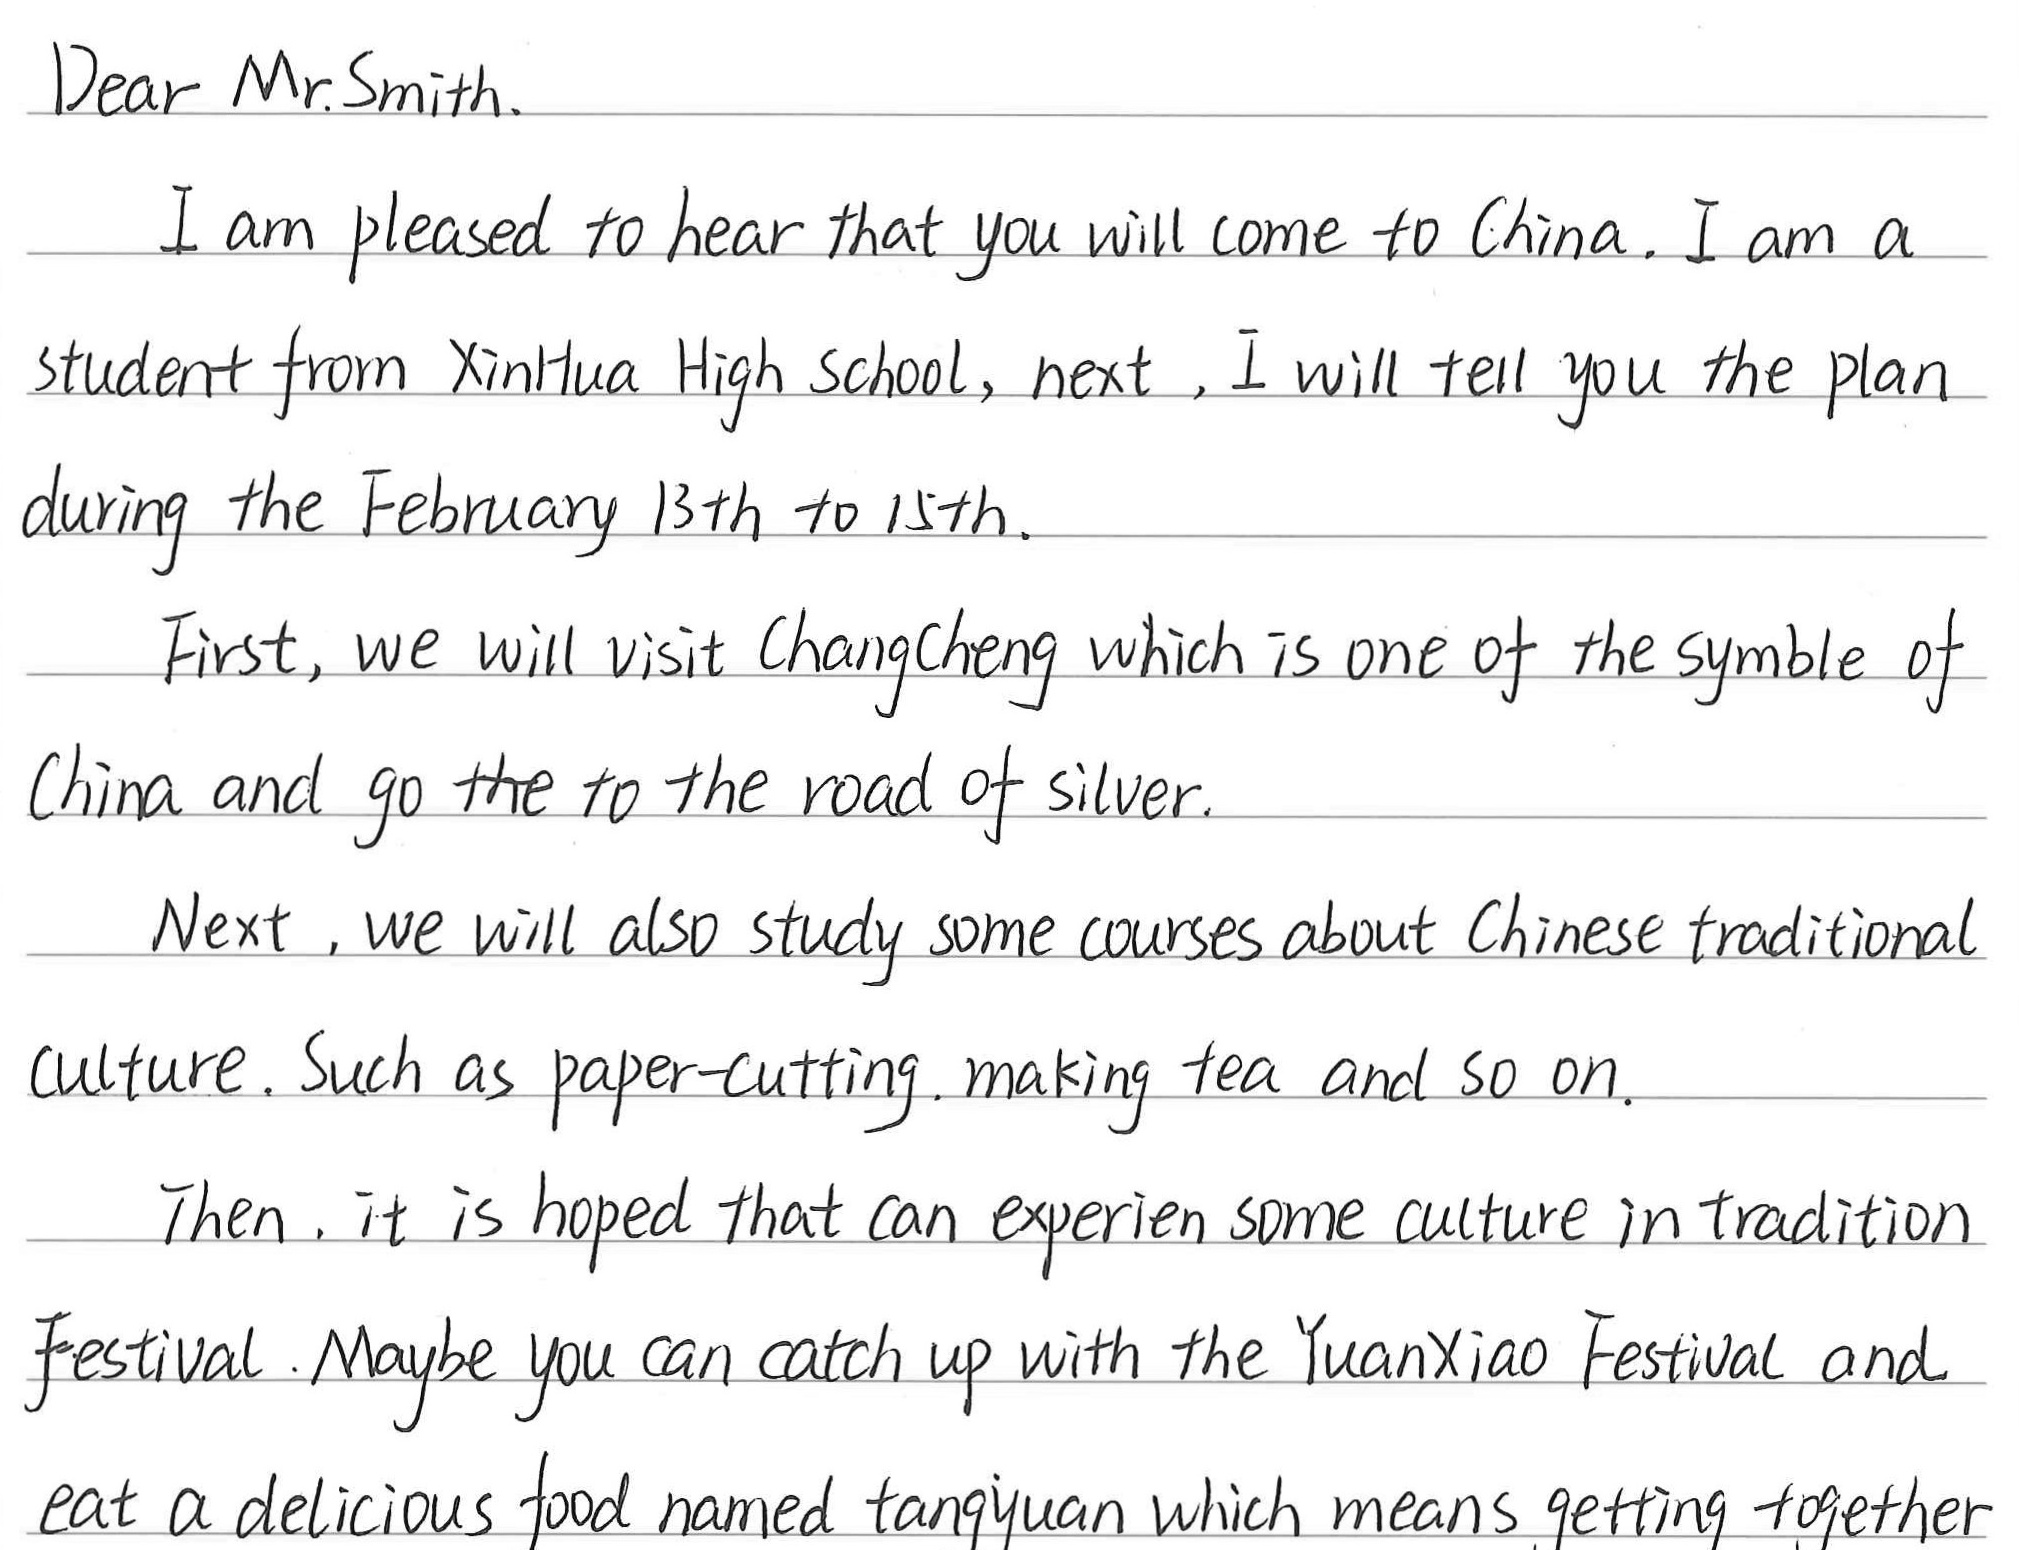 Dear Mr. Smith.
I am pleased to hear that you will come to China. I am a
student from XinHua High school, next, I will tell you the plan
during the February 13th to 15th.
First, we will visit ChangCheng which is one of the symble of
China and go the to the road of silver.
Next, we will also study some courses about Chinese traditional
culture. Such as paper-cutting. making tea and so on.
Then, it is hoped that can experien some culture in tradition
Festival. Maybe you can catch up with the YuanXiao Festival and
eat a delicious food named tangyuan which means getting together